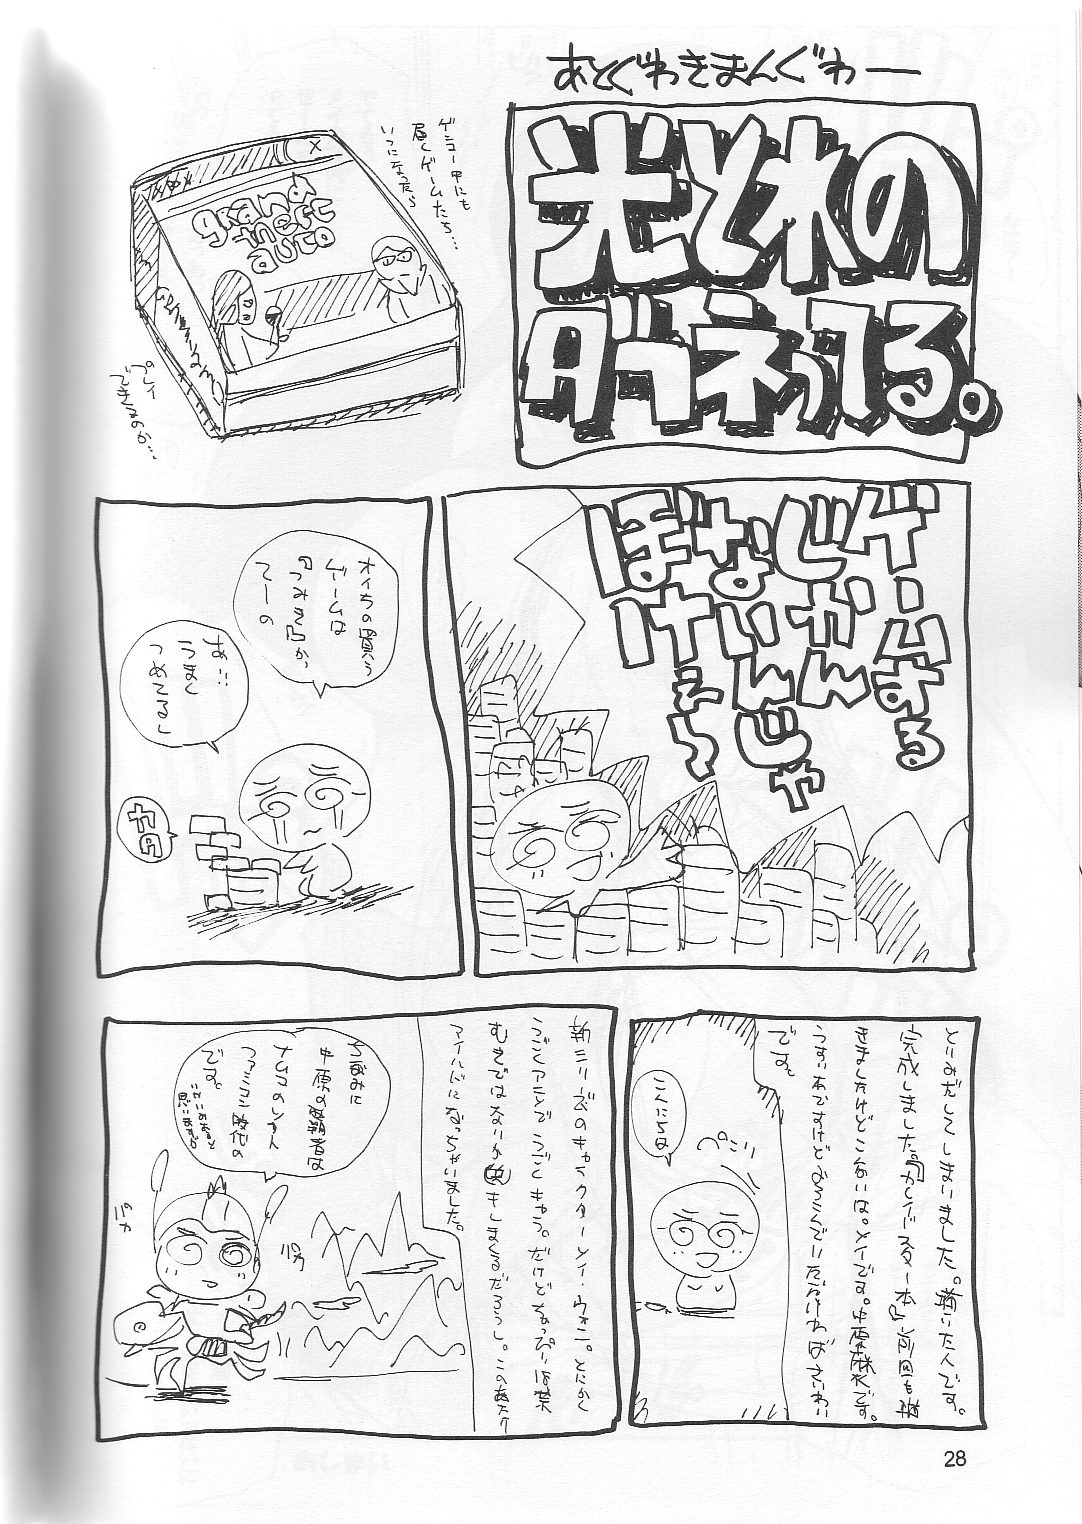 あとぐわきまんぐわー
光と木の
ダブネってる。
ゲンコー中にも
届くゲームたち…
いつになったら
プレイ
できるのか…
grand
theft
auto
ゲームする
じかん
ないんじゃ
ぼけぇっ
オイちの買う
ゲームは
『つみ木』か
てーの
あ…
うまく
つめてるし
とりみだしてしまいました。描いた人です。
完成しました。『カレイドスター本』前回も描
きましたけどこんにちは。メイです。中原麻衣です。
うすい本ですけどよろこんでいただければさいわい
です。
こんにちは
ぺこり
新シリーズのキャラクターメイ・ウォン。とにかく
うごくアニメでうごくキャラ。だけどなっぴりは禁
むきではないか
きしまくるだろうし。この
マイルドになっちゃいました。
ちなみに
中原の
ナムコの
ファミコン時代の
です。
パカ
パカ
28